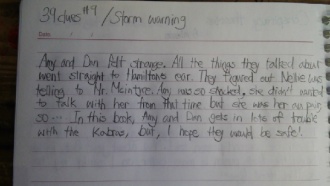 39 clues #9 / Storm warning
Date
Amy and Dan felt strange. All the things they talked about
went straight to Hamilton's ear. They figured out Nellie was
telling to Mr. Mcintyre. Amy was so shocked, she didn't wanted
to talk with her from that time but she was her au pair,
so ... In this book, Amy and Dan gets in lots of trouble
with the Kabras, but, I hope they would be safe!